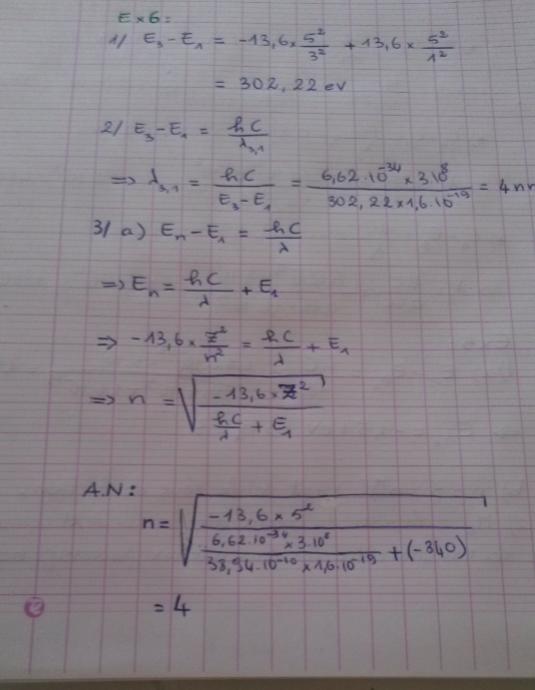 Ex6:
1/ E₃-E₁ = -13,6 × 5²/3² + 13,6 × 5²/1²
= 302,22 ev
2/ E₃-E₁ = hC/λ₃,₁
=> λ₃,₁ = hC/(E₃-E₁) = (6,62.10⁻³⁴ × 3.10⁸)/(302,22 × 1,6.10⁻¹⁹) = 4 nm
3/ a) Eₙ-E₁ = hC/λ
=> Eₙ = hC/λ + E₁
=> -13,6 × Z²/n² = hC/λ + E₁
=> n = √((-13,6 × Z²)/(hC/λ + E₁))
A.N:
n = √((-13,6 × 5²)/((6,62.10⁻³⁴ × 3.10⁸)/(38,94.10⁻¹⁰ × 1,6.10⁻¹⁹) + (-340)))
= 4